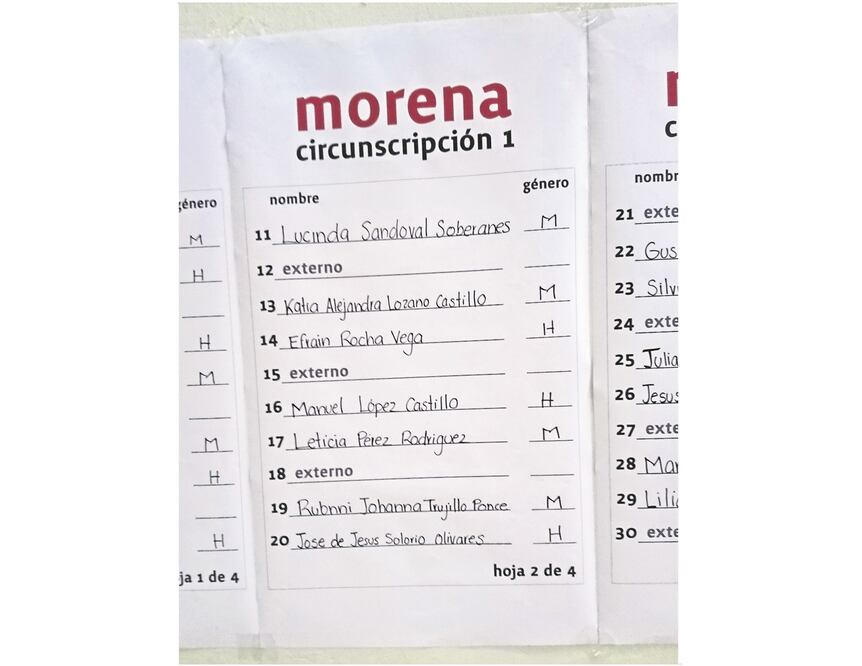 género
M
H
H
M
M
H
H
ja 1 de 4
morena
circunscripción 1
nombre género
11 Lucinda Sandoval Soberanes M
12 externo
13 Katia Alejandra Lozano Castillo M
14 Efrain Rocha Vega H
15 externo
16 Manuel López Castillo H
17 Leticia Pérez Rodriguez M
18 externo
19 Rubnni Johanna Trujillo Ponce M
20 Jose de Jesus Solorio Olivares H
hoja 2 de 4
nombr
21 exte
22 Gus
23 Silv
24 exte
25 Julia
26 Jesus
27 exte
28 Mar
29 Lili
30 exte